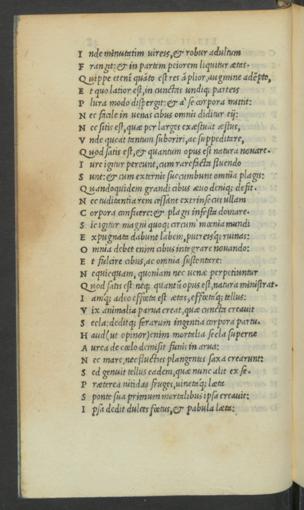 I nde minutatim uireis, & robur adultum
F rangit: & in partem peiorem liquitur ætas.
Q uippe eteni quáto est res áplior, augmine adépto,
E t quo latior est, in cunctas undiq; parteis
P lura modo dispergit: & a' se corpora mittit:
N ec facile in uenas cibus omnis diditur eij:
N ec satis est, quæ per largos exæstuat æstus,
V nde queat tantum suboriri, ac suppeditare,
Q uod satis est, & quantum opus est natura nouare.
I ure igitur pereunt, cum rarefacta fluendo
S unt: & cum externis succumbunt omnia plagis:
Q uandoquidem grandi cibus æuo deniq; defit.
N ec tuditentia rem cessant extrinsecus ullam
C orpora conficere: & plagis infesta domare.
S ic igitur magni quoq; circum mœnia mundi
E xpugnata dabunt labem, putresq; ruinas:
O mnia debet enim cibus integrare nouando:
E t fulcire cibus, ac omnia sustentare:
N equicquam, quoniam nec uenæ perpetiuntur
Q uod satis est neq; quantū opus est, natura ministrat.
I amq; adeo effœta est ætas, effœtaq; tellus:
V ix animalia parua creat, quæ cuncta creauit
S ecla: deditq; ferarum ingentia corpora partu.
H aud (ut opinor) enim mortalia secla superne
A urea de cœlo demisit funis in arua:
N ec mare, nec fluctus plangentes saxa crearunt:
S ed genuit tellus eadem, quæ nunc alit ex se.
P ræterea nitidas fruges, uinetaq; læta
S ponte sua primum mortalibus ipsa creauit:
I psa dedit dulces fœtus, & pabula læta: